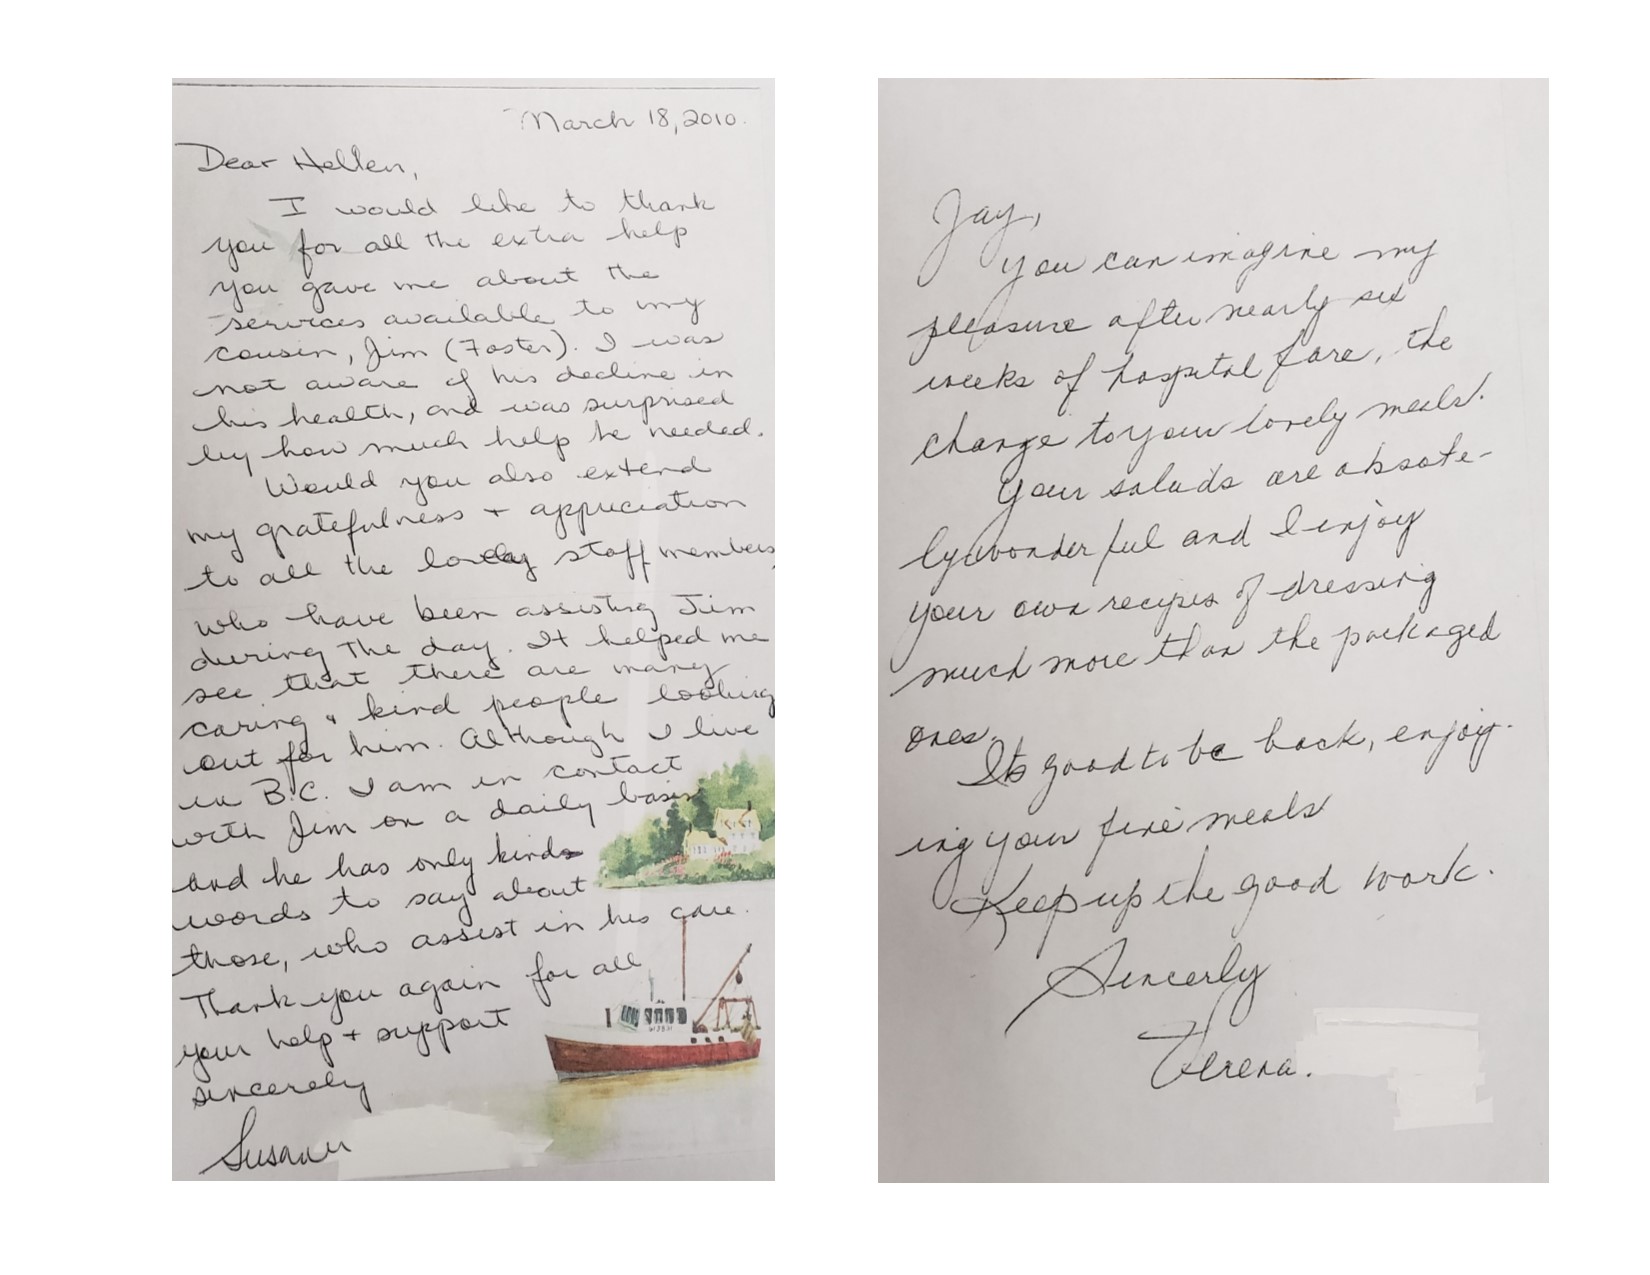 March 18, 2010.
Dear Hellen,
I would like to thank
you for all the extra help
you gave me about the
services available to my
cousin, Jim (Foster). I was
not aware of his decline in
his health, and was surprised
by how much help he needed.
Would you also extend
my gratefulness + appreciation
to all the lovely staff members
who have been assisting Jim
during the day. It helped me
see that there are many
caring + kind people looking
out for him. Although I live
in B.C. I am in contact
with Jim on a daily basis
and he has only kind
words to say about
those, who assist in his care.
Thank you again for all
your help + support
sincerely
Jay,
you can imagine my
pleasure after nearly six
weeks of hospital fare, the
change to your lovely meals.
Your salads are absote-
ly wonderful and I enjoy
your own recipes of dressing
much more than the packaged
ones.
Its good to be back, enjoy-
ing your fine meals
Keep up the good work.
Sincerly
Verena.